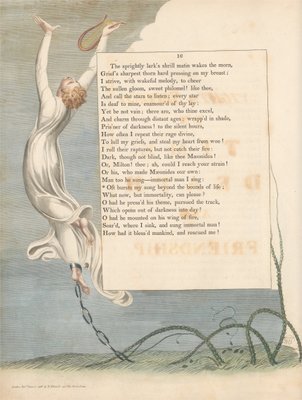 16
The sprightly lark's shrill matin wakes the morn,
Grief's sharpest thorn hard pressing on my breast;
I strive, with wakeful melody, to cheer
The sullen gloom, sweet philomel! like thee,
And call the stars to listen: every star
Is deaf to mine, enamour'd of thy lay:
Yet be not vain; there are, who thine excel,
And charm through distant ages: wrapp'd in shade,
Pris'ner of darkness! to the silent hours,
How often I repeat their rage divine,
To lull my griefs, and steal my heart from woe!
I roll their raptures, but not catch their fire:
Dark, though not blind, like thee Mæonides!
Or, Milton! thee; ah, could I reach your strain!
Or his, who made Mæonides our own:
Man too he sung—immortal man I sing:
* Oft bursts my song beyond the bounds of life;
What now, but immortality, can please?
O had he press'd his theme, pursued the track,
Which opens out of darkness into day!
O had he mounted on his wing of fire,
Soar'd, where I sink, and sung immortal man!
How had it bless'd mankind, and rescued me!